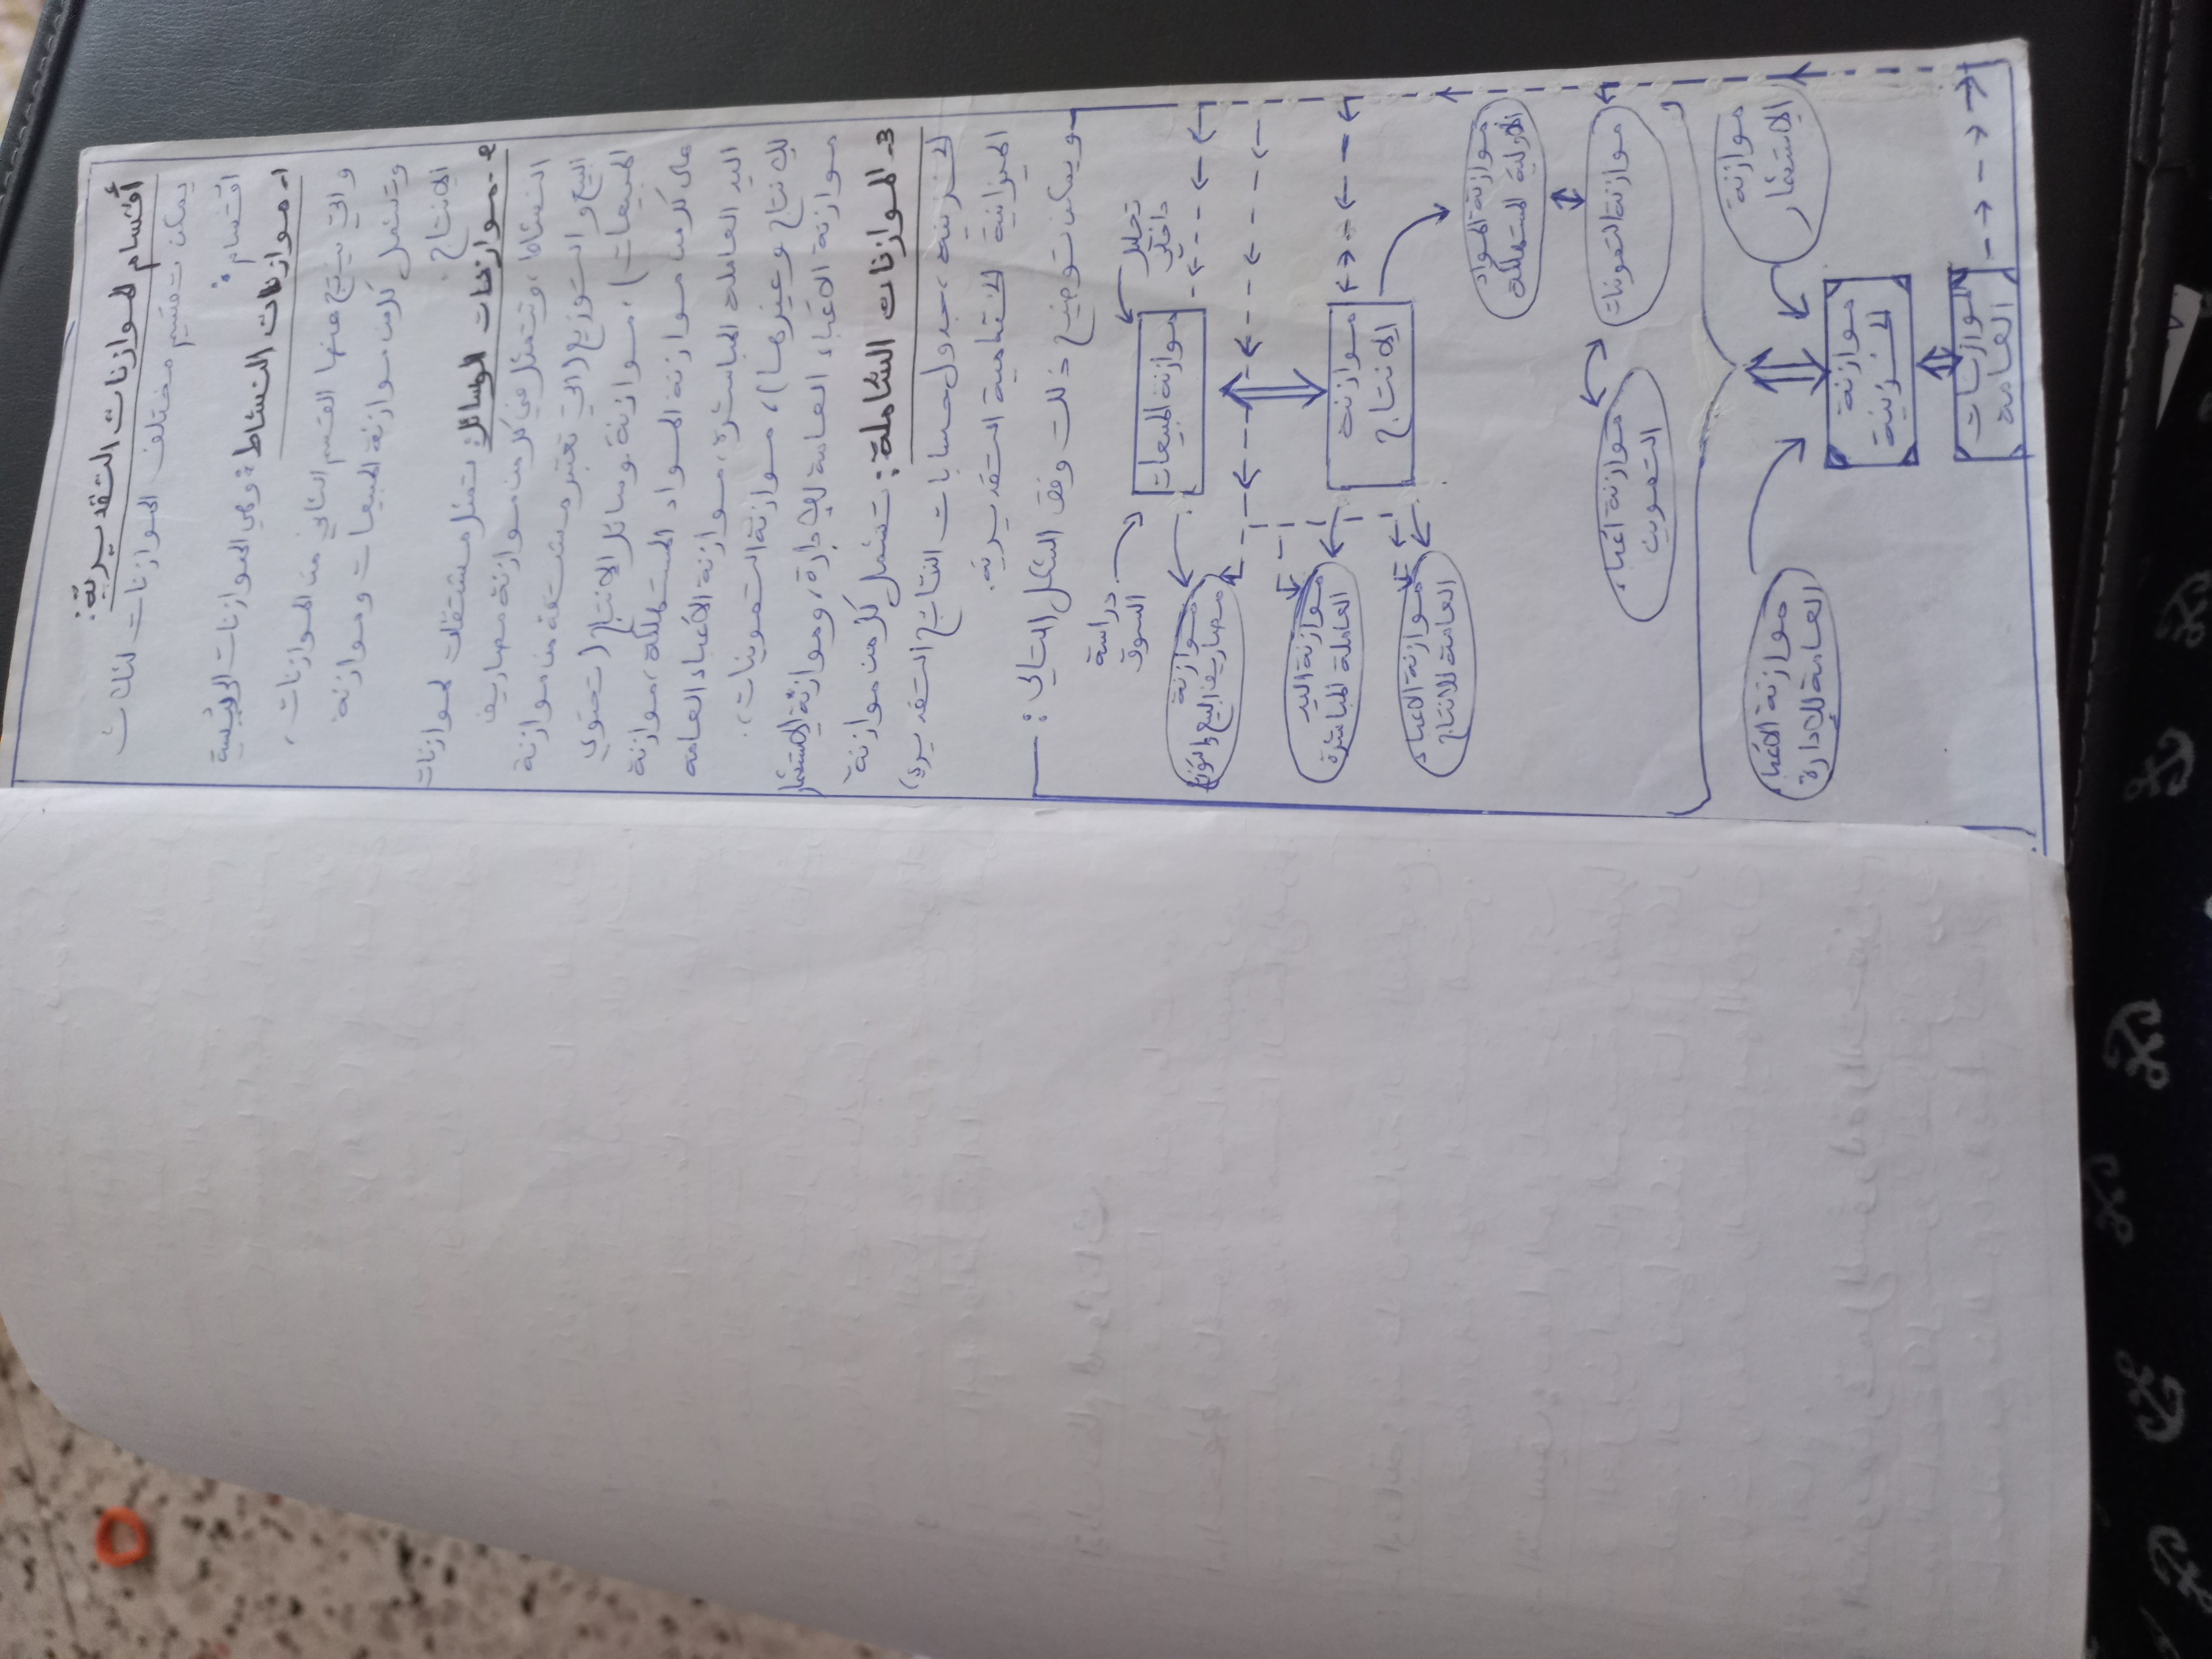 أقسام الموازنات التقديرية:
يمكن تقسيم مختلف الموازنات لثلاث
اقسام:
1- موازنات النشاط: وهي الموازنات الرئيسية
والتي ينتج عنها القسم الثاني من الموازنات،
وتشمل كل من موازنة المبيعات وموازنة
الانتاج.
2- موازنات الوسائل: تمثل مشتقات لموازنات
النشاط، وتتمثل في كل من موازنة مصاريف
البيع والتوزيع (التي تعتبر مشتقة من موازنة
المبيعات)، موازنة وسائل الانتاج (تحتوي
على كل من موازنة المواد المستهلكة، موازنة
اليد العاملة المباشرة، موازنة الأعباء العامة
للإنتاج وغيرها)، موازنة التموينات،
موازنة الأعباء العامة للإدارة، وموازنة الاستثمار
3- الموازنات الشاملة: تشمل كل من موازنة
الخزينة، جدول حسابات النتائج التقديري،
الميزانية الختامية التقديرية.
ويمكن توضيح ذلك وفق الشكل التالي:
تحليل داخلي
موازنة المبيعات
دراسة السوق
موازنة مصاريف البيع والتوزيع
موازنة الانتاج
موازنة اليد العاملة المباشرة
موازنة الاعباء العامة للانتاج
موازنة المواد الأولية المستهلكة
موازنة التموينات
موازنة اعباء التموين
موازنة الاستثمار
موازنة الخزينة
موازنة الاعباء العامة للإدارة
الموازنات العامة